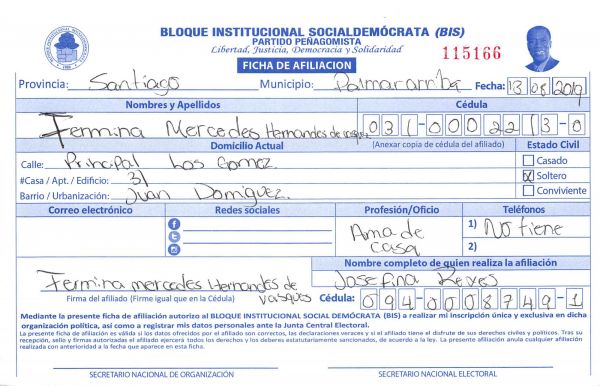 BLOQUE INSTITUCIONAL SOCIALDEMÓCRATA (BIS)
PARTIDO PEÑAGOMISTA
Libertad, Justicia, Democracia y Solidaridad
115166
FICHA DE AFILIACION
Provincia: Santiago Municipio: Palmar arriba Fecha: 13 08 2019
Nombres y Apellidos Cédula
Fermina Mercedes Hernandes de vasquez 031-0002213-0
Domicilio Actual (Anexar copia de cédula del afiliado) Estado Civil
Calle: Principal Los Gomez Casado
#Casa / Apt. / Edificio: 31 X Soltero
Barrio / Urbanización: Juan Domiguez. Conviviente
Correo electrónico Redes sociales Profesión/Oficio Teléfonos
Ama de casa 1) No tiene
2)
Nombre completo de quien realiza la afiliación
Fermina mercedes Hernandes de vasques Josefina Reyes
Firma del afiliado (Firme igual que en la Cédula) Cédula: 094-0008749-1
Mediante la presente ficha de afiliación autorizo al BLOQUE INSTITUCIONAL SOCIAL DEMÓCRATA (BIS) a realizar mi inscripción única y exclusiva en dicha
organización política, así como a registrar mis datos personales ante la Junta Central Electoral.
La presente ficha de afiliación es válida si los datos ofrecidos por el afiliado son correctos, las declaraciones veraces y si el afiliado tiene el disfrute de sus derechos civiles y políticos. Tras su
recepción, sello y firmas autorizadas el afiliado ejercerá todos los derechos y los deberes estatutariamente sancionados, de acuerdo a la ley. La presente afiliación anula cualquier afiliación
realizada con anterioridad a la fecha que aparece en esta ficha.
SECRETARIO NACIONAL DE ORGANIZACIÓN SECRETARIO NACIONAL ELECTORAL